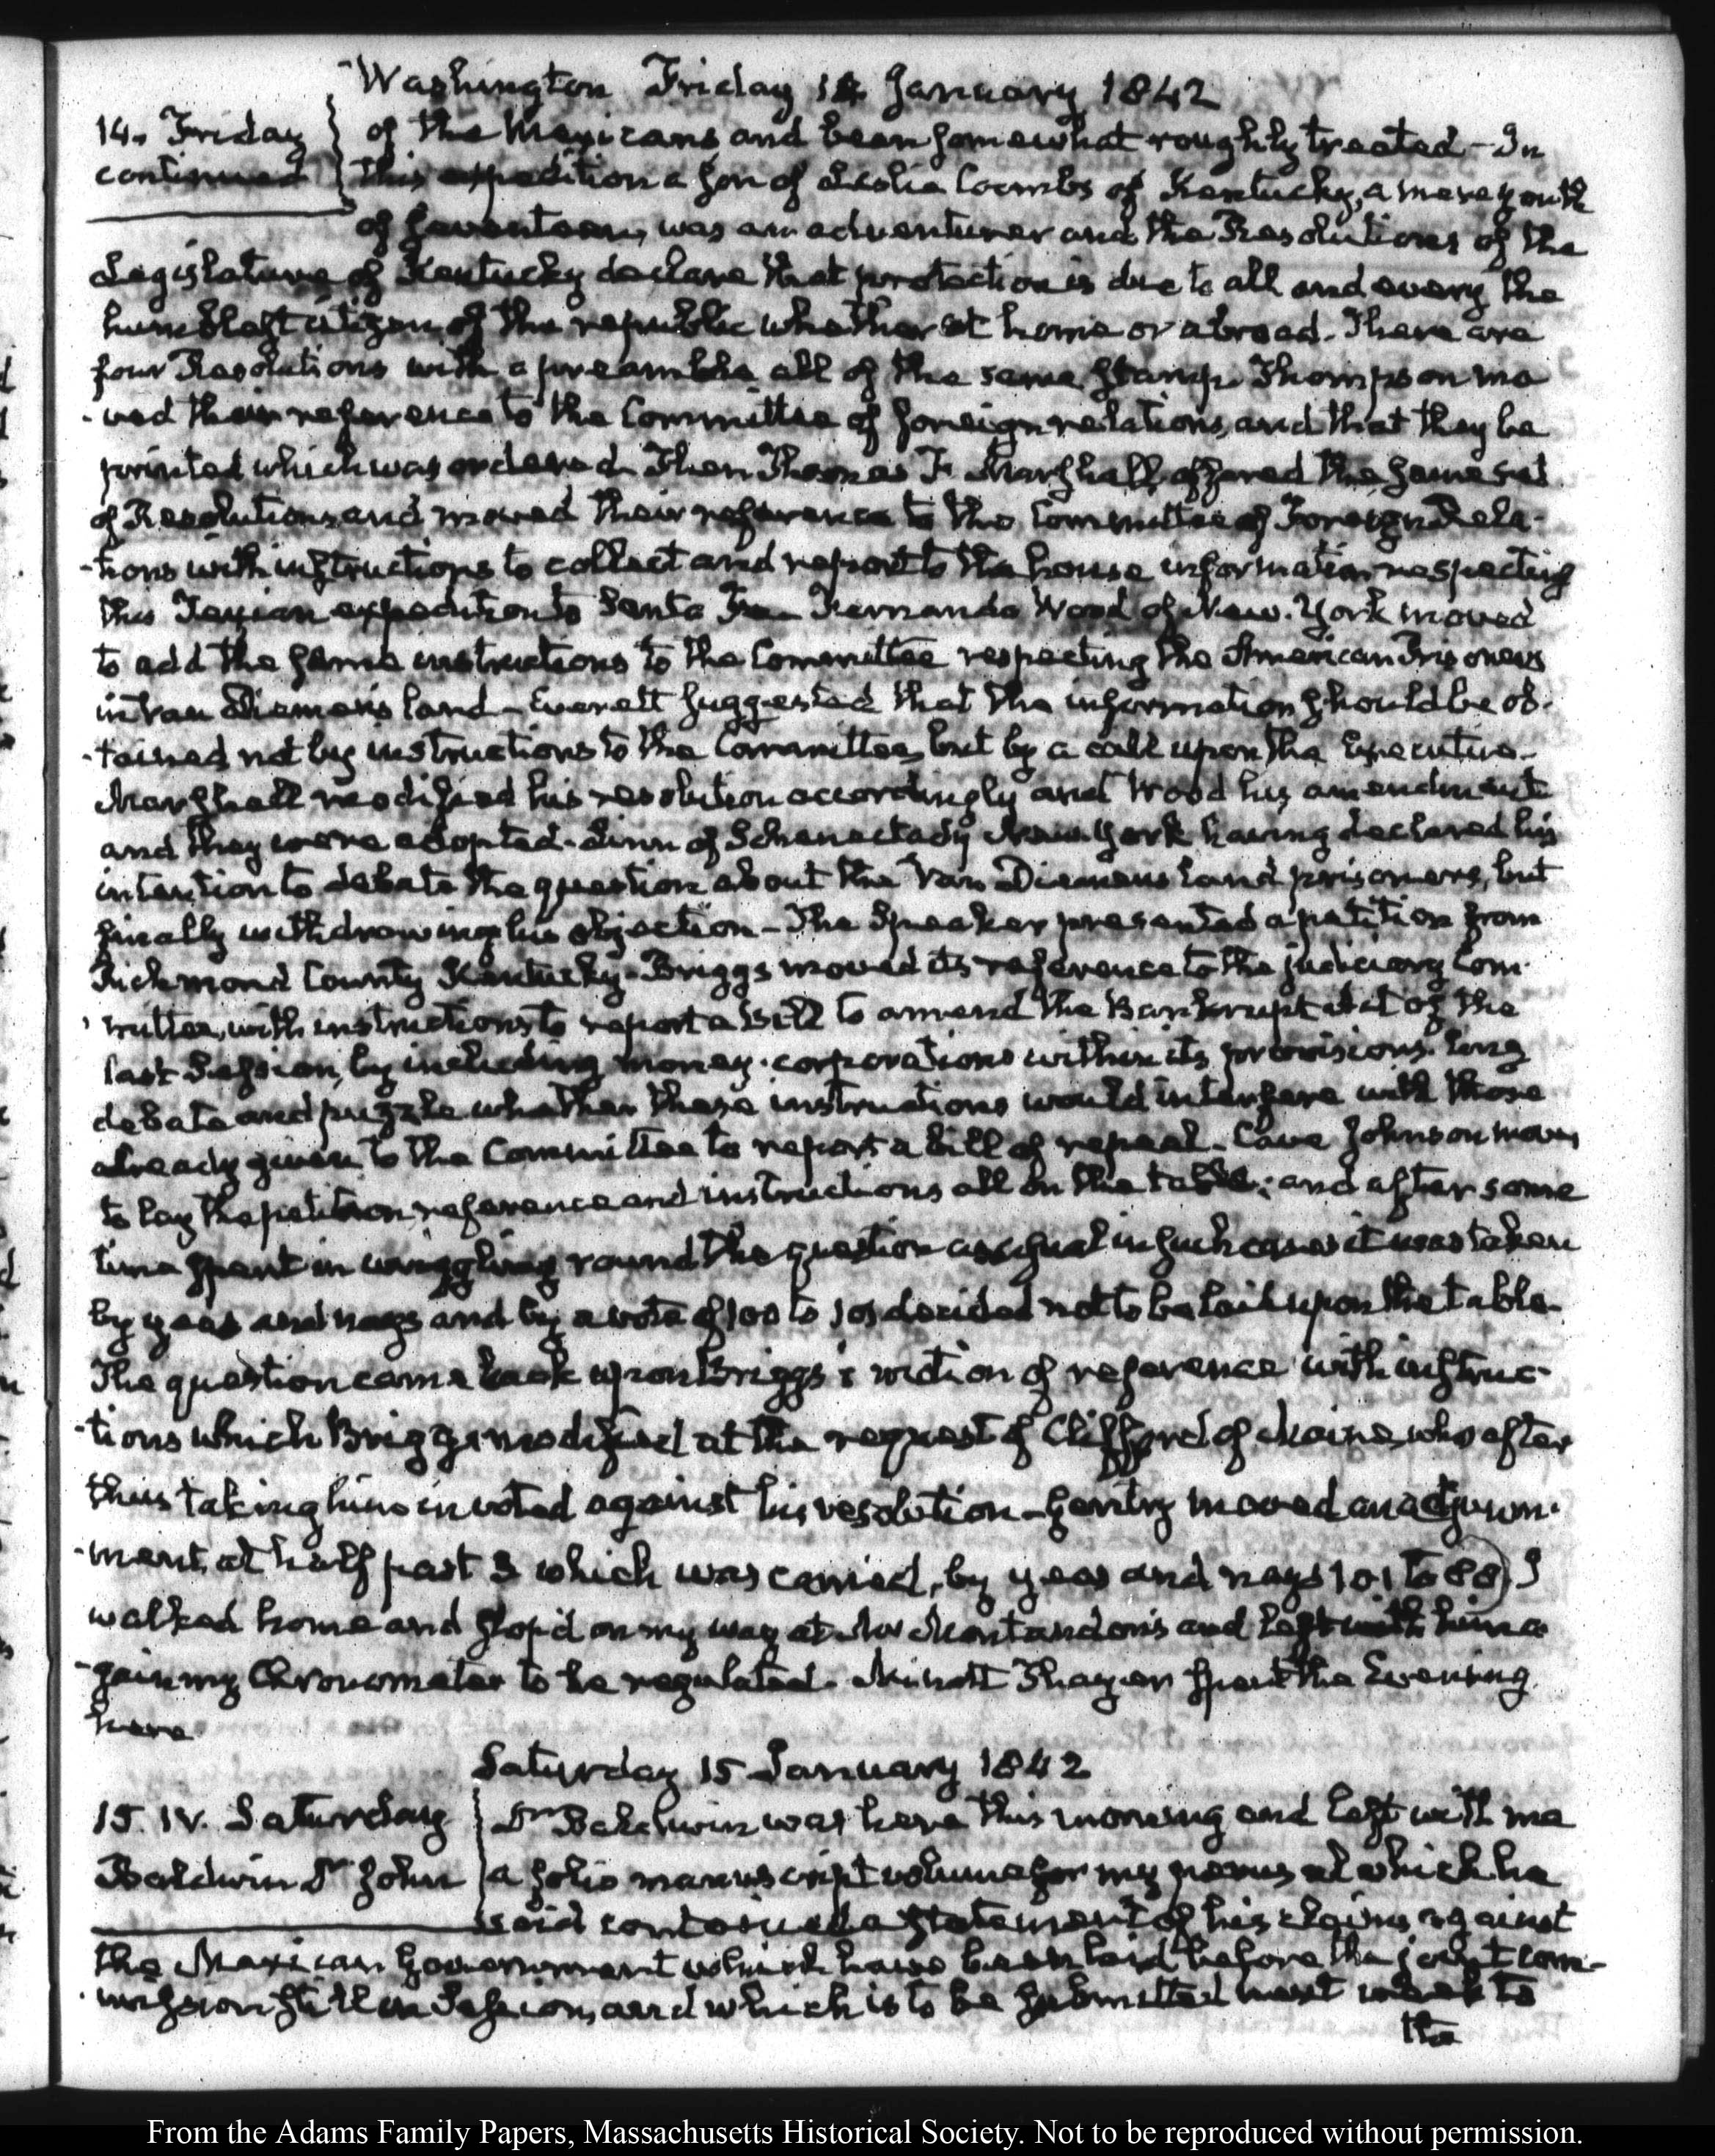 Washington Friday 14 January 1842
14. Friday
continued
of the Mexicans and been somewhat roughly treated - In
this expedition a son of Leslie Coombs of Kentucky, a mere youth
of seventeen, was an adventurer and the Resolutions of the
Legislature of Kentucky declare that protection is due to all and every the
humblest citizen of the republic whether at home or abroad. There are
four Resolutions with a preamble all of the same stamp. Thompson mo
-ved their reference to the Committee of foreign relations, and that they be
printed which was ordered. Then Thomas F. Marshall offered the same set
of Resolutions and moved their reference to the Committee of Foreign Rela-
-tions with instructions to collect and report to the house information respecting
this Texian expedition to Santa Fe - Fernando Wood of New-York moved
to add the same instructions to the Committee respecting the American Prisoners
in Van Diemen's land - Everett suggested that the information should be ob-
-tained not by instructions to the Committee, but by a call upon the Executive -
Marshall modified his resolution accordingly and Wood his amendment
and they were adopted. Linn of Schenectady New-York having declared his
intention to debate the question about the Van Diemens land prisoners, but
finally withdrawing his objection - The Speaker presented a petition from
Richmond County Kentucky - Briggs moved its reference to the judiciary Com-
-mittee, with instructions to report a bill to amend the Bankrupt Act of the
last Session, by including money-corporations within its provisions. Long
debate and puzzle whether these instructions would interfere with those
already given to the Committee to report a bill of repeal - Cave Johnson moves
to lay the petition, reference and instructions all on the table; and after some
time spent in wriggling round the question as usual in such cases it was taken
by yeas and nays and by a vote of 100 to 101 decided not to be laid upon the table.
The question came back upon Briggs's motion of reference with instruc-
-tions which Briggs modified at the request of Clifford of Maine, who after
thus taking him in voted against his resolution - Gentry moved an adjourn-
-ment, at half past 3 which was carried, by yeas and nays 101 to 88) I
walked home and stop'd on my way at Mr Montandon's and left with him a
-gain my Chronometer to be regulated. Minott Thayer spent the Evening
here
Saturday 15 January 1842
15. IV. Saturday
Baldwin Dr John
Dr Baldwin was here this morning and left with me
a folio manuscript volume for my perusal which he
said contained a statement of his claims against
the Mexican Government which have been laid before the joint com-
-mission still in Session, and which is to be submitted next week to
the
From the Adams Family Papers, Massachusetts Historical Society. Not to be reproduced without permission.